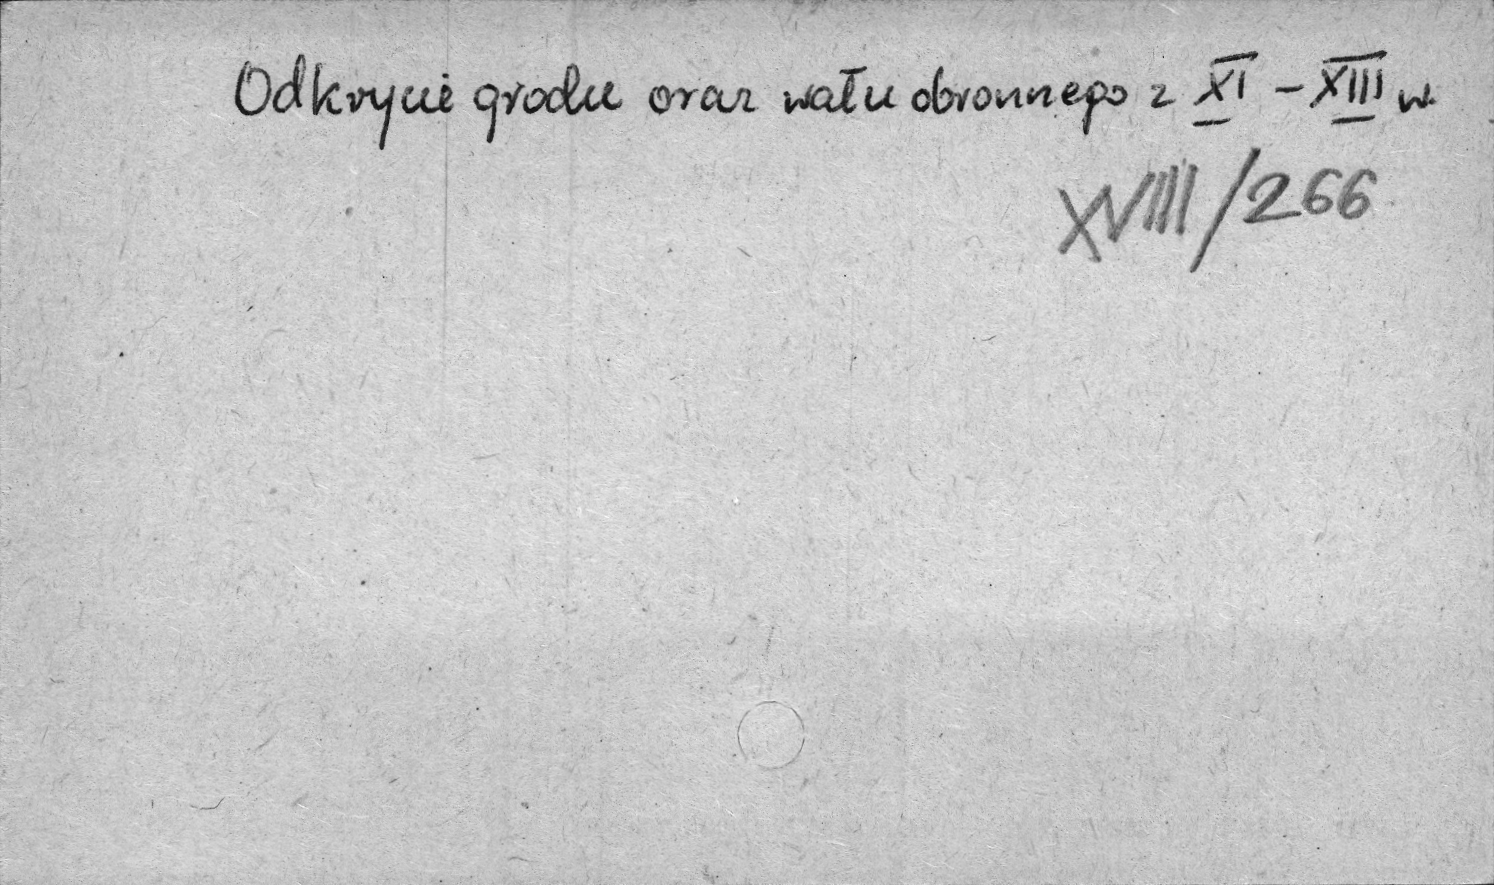 Odkrycie grodu oraz wału obronnego z XI - XIII w.
XVIIII/266